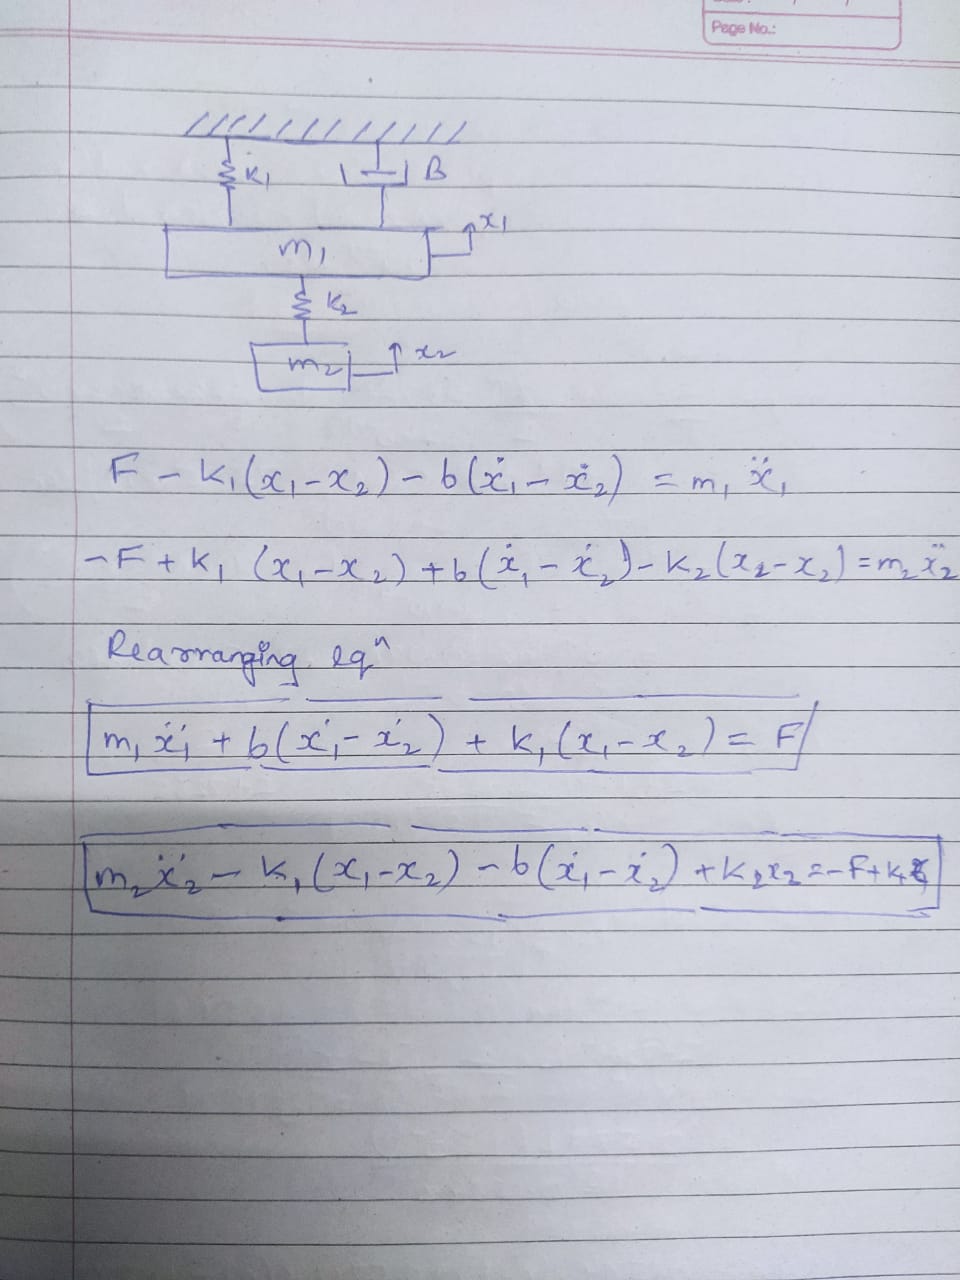 Page No.:
K₁ B
m₁ x₁
K₂
m₂ x₂
F - K₁(x₁-x₂) - b(ẋ₁ - ẋ₂) = m₁ ẍ₁
-F + K₁ (x₁-x₂) + b(ẋ₁ - ẋ₂) - K₂(x₂-x₂) = m₂ ẍ₂
Rearranging eqⁿ
m₁ ẍ₁ + b(ẋ₁ - ẋ₂) + K₁(x₁-x₂) = F
m₂ ẍ₂ - K₁(x₁-x₂) - b(ẋ₁ - ẋ₂) + K₂x₂ = -F+